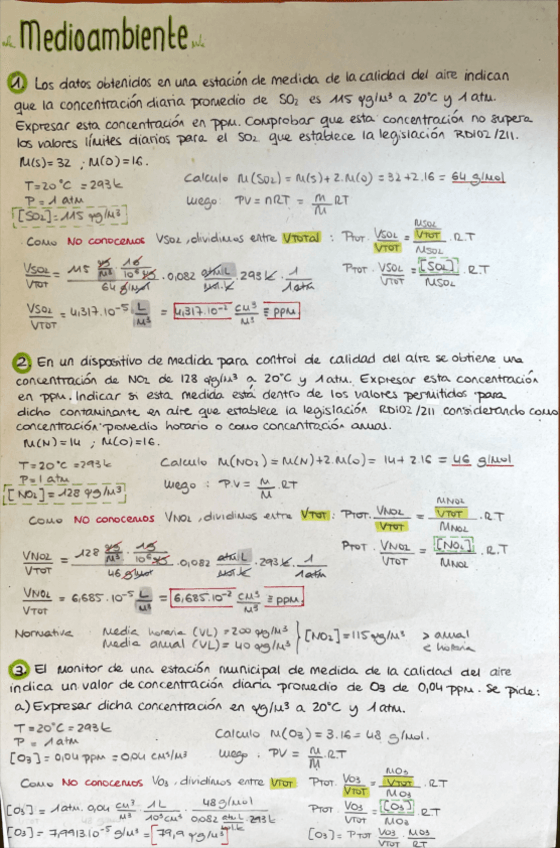 Medioambiente
1. Los datos obtenidos en una estación de medida de la calidad del aire indican
que la concentración diaria promedio de SO₂ es 115 μg/m³ a 20°C y 1 atm.
Expresar esta concentración en ppm. Comprobar que esta concentración no supera
los valores límites diarios para el SO₂ que establece la legislación RD102/211.
M(S)=32 ; M(O)=16.
T=20°C = 293k
P = 1 atm
[SO₂]=115 μg/m³
Calculo M(SO₂) = M(S)+2.M(O) = 32+2.16 = 64 g/mol
Luego: PV = nRT = m/M RT
Como NO conocemos VSO₂, dividimos entre VTOTAL : PTOT. VSO₂/VTOT = (MSO₂/VTOT)/MSO₂ . RT
VSO₂/VTOT = (115 μg/m³ . 1g/10⁶ μg)/(64 g/mol) . 0,082 atm.L/mol.k . 293k . 1/1atm
PTOT . VSO₂/VTOT = [SO₂]/MSO₂ . RT
VSO₂/VTOT = 4,317.10⁻⁵ L/m³ = 4,317.10⁻² cm³/m³ ≡ ppm
2. En un dispositivo de medida para control de calidad del aire se obtiene una
concentración de NO₂ de 128 μg/m³ a 20°C y 1 atm. Expresar esta concentración
en ppm. Indicar si esta medida está dentro de los valores permitidos para
dicho contaminante en aire que establece la legislación RD102/211 considerando como
concentración promedio horario o como concentración anual.
M(N)=14 ; M(O)=16.
T=20°C = 293k
P=1 atm
[NO₂] = 128 μg/m³
Calculo M(NO₂) = M(N)+2.M(O) = 14+2.16 = 46 g/mol
Luego : P.V = m/M . RT
Como NO conocemos VNO₂, dividimos entre VTOT : PTOT. VNO₂/VTOT = (MNO₂/VTOT)/MNO₂ . RT
VNO₂/VTOT = (128 μg/m³ . 1g/10⁶ μg)/(46 g/mol) . 0,082 atm.L/mol.k . 293k . 1/1atm
PTOT . VNO₂/VTOT = [NO₂]/MNO₂ . R.T
VNO₂/VTOT = 6,685.10⁻⁵ L/m³ = 6,685.10⁻² cm³/m³ ≡ ppm
Normativa : Media horaria (VL) = 200 μg/m³ } [NO₂] = 115 μg/m³ > anual
Media anual (VL) = 40 μg/m³ < horaria
3. El monitor de una estación municipal de medida de la calidad del aire
indica un valor de concentración diaria promedio de O₃ de 0,04 ppm. Se pide:
a) Expresar dicha concentración en μg/m³ a 20°C y 1 atm.
T=20°C = 293k
P = 1 atm
[O₃] = 0,04 ppm = 0,04 cm³/m³
Calculo M(O₃) = 3.16 = 48 g/mol.
Luego . PV = m/M . RT
Como NO conocemos VO₃, dividimos entre VTOT PTOT. VO₃/VTOT = (MO₃/VTOT)/MO₃ . RT
[O₃] = 1 atm. 0,04 cm³/m³ . 1L/10³cm³ . 48 g/mol/(0,082 atm.L/mol.k . 293k)
PTOT . VO₃/VTOT = [O₃]/MO₃ RT
[O₃] = 7,9913.10⁻⁵ g/m³ = 79,9 μg/m³
[O₃] = PTOT VO₃/VTOT . MO₃/RT